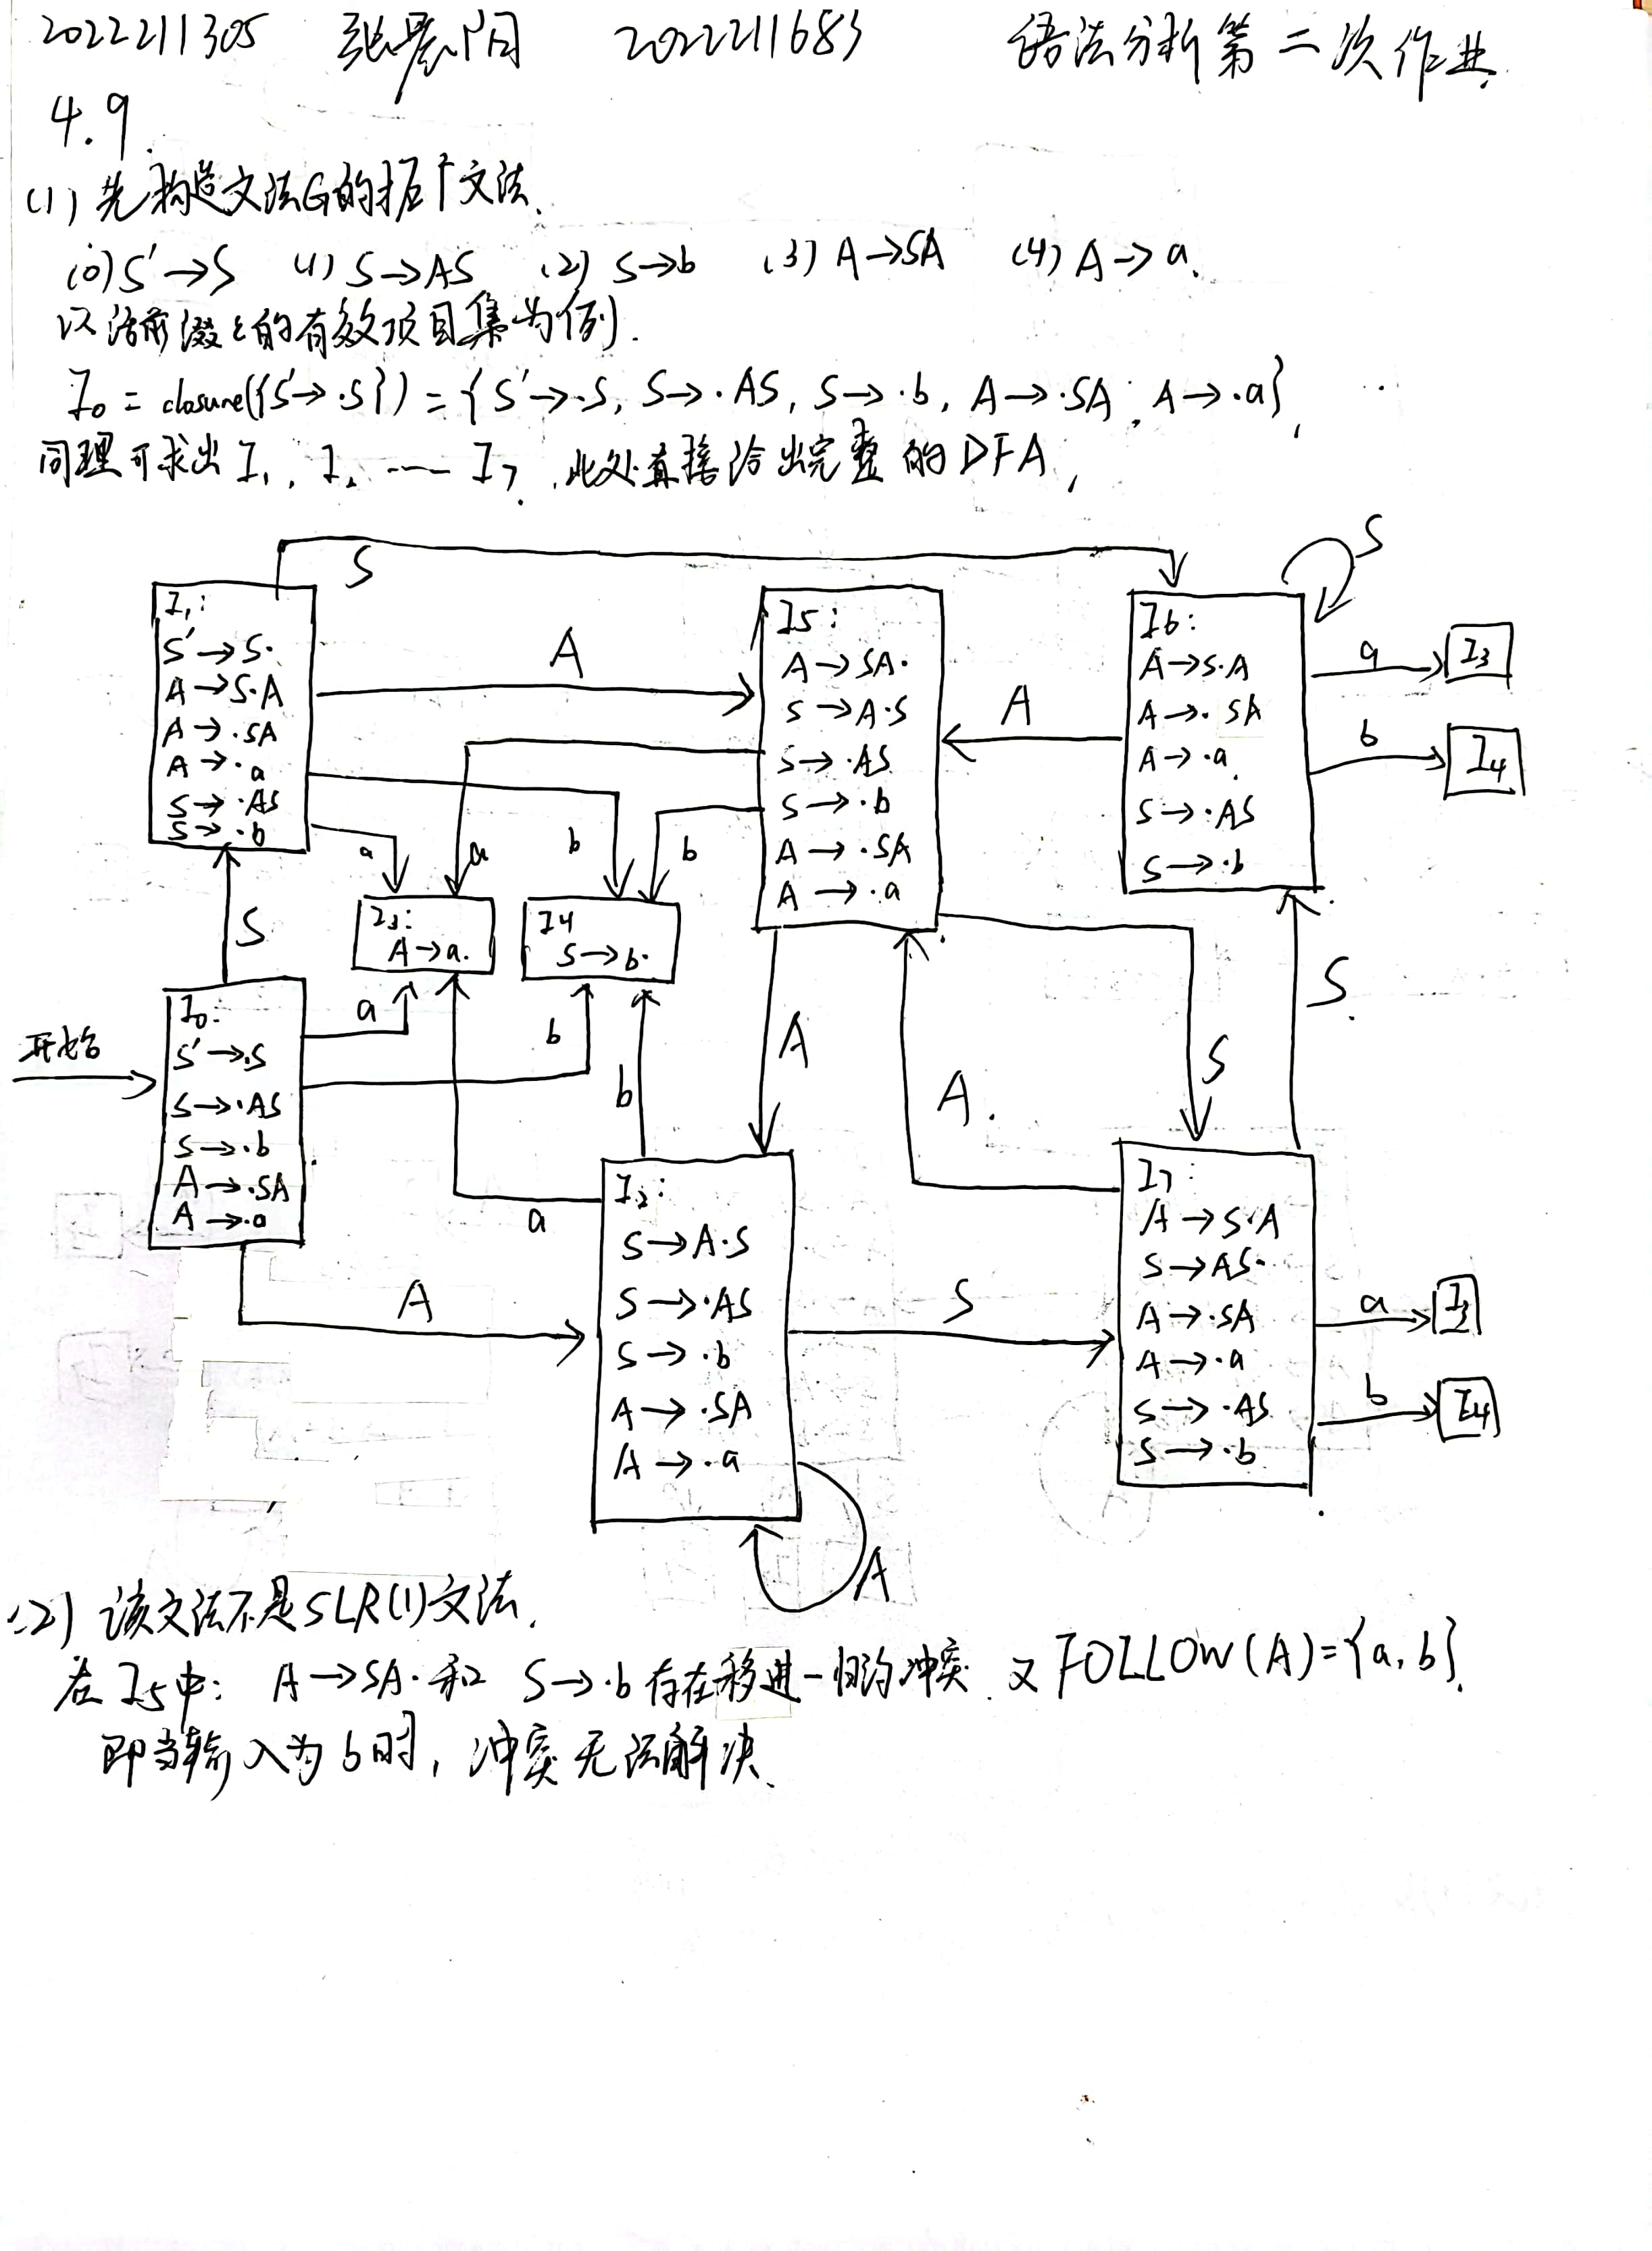 2022211305 张晨阳 2022211683 语法分析第二次作业.
4.9.
(1) 先构造文法G的拓广文法.
(0) S'→S (1) S→AS (2) S→b (3) A→SA (4) A→a.
以活前缀ε的有效项目集为例.
I₀ = closure({S'→·S}) = {S'→·S, S→·AS, S→·b, A→·SA, A→·a},
同理可求出 I₁, I₂ ····· I₇. 此处直接给出完整的DFA,
S
S
I₁:
S'→S·
A→S·A
A→·SA
A→·a
S→·AS
S→·b
A
I5:
A→SA·
S→A·S
S→·AS
S→·b
A→·SA
A→·a
A
I6:
A→S·A
A→·SA
A→·a
S→·AS
S→·b
a
I3
b
I4
a
a
b
b
S
I3:
A→a·
I4
S→b·
开始
I₀:
S'→·S
S→·AS
S→·b
A→·SA
A→·a
a
b
a
b
A
A.
S
S.
A
I₂:
S→A·S
S→·AS
S→·b
A→·SA
A→·a
A
S
I₇:
A→S·A
S→AS·
A→·SA
A→·a
S→·AS
S→·b
a
I3
b
I4
(2) 该文法不是SLR(1)文法.
在I5中: A→SA·和 S→·b存在移进-归约冲突. 又FOLLOW(A)={a,b}.
即当输入为b时, 冲突无法解决.